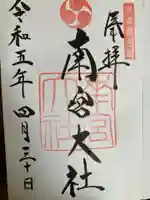 奉拝
南宮大社
令和五年四月三十日